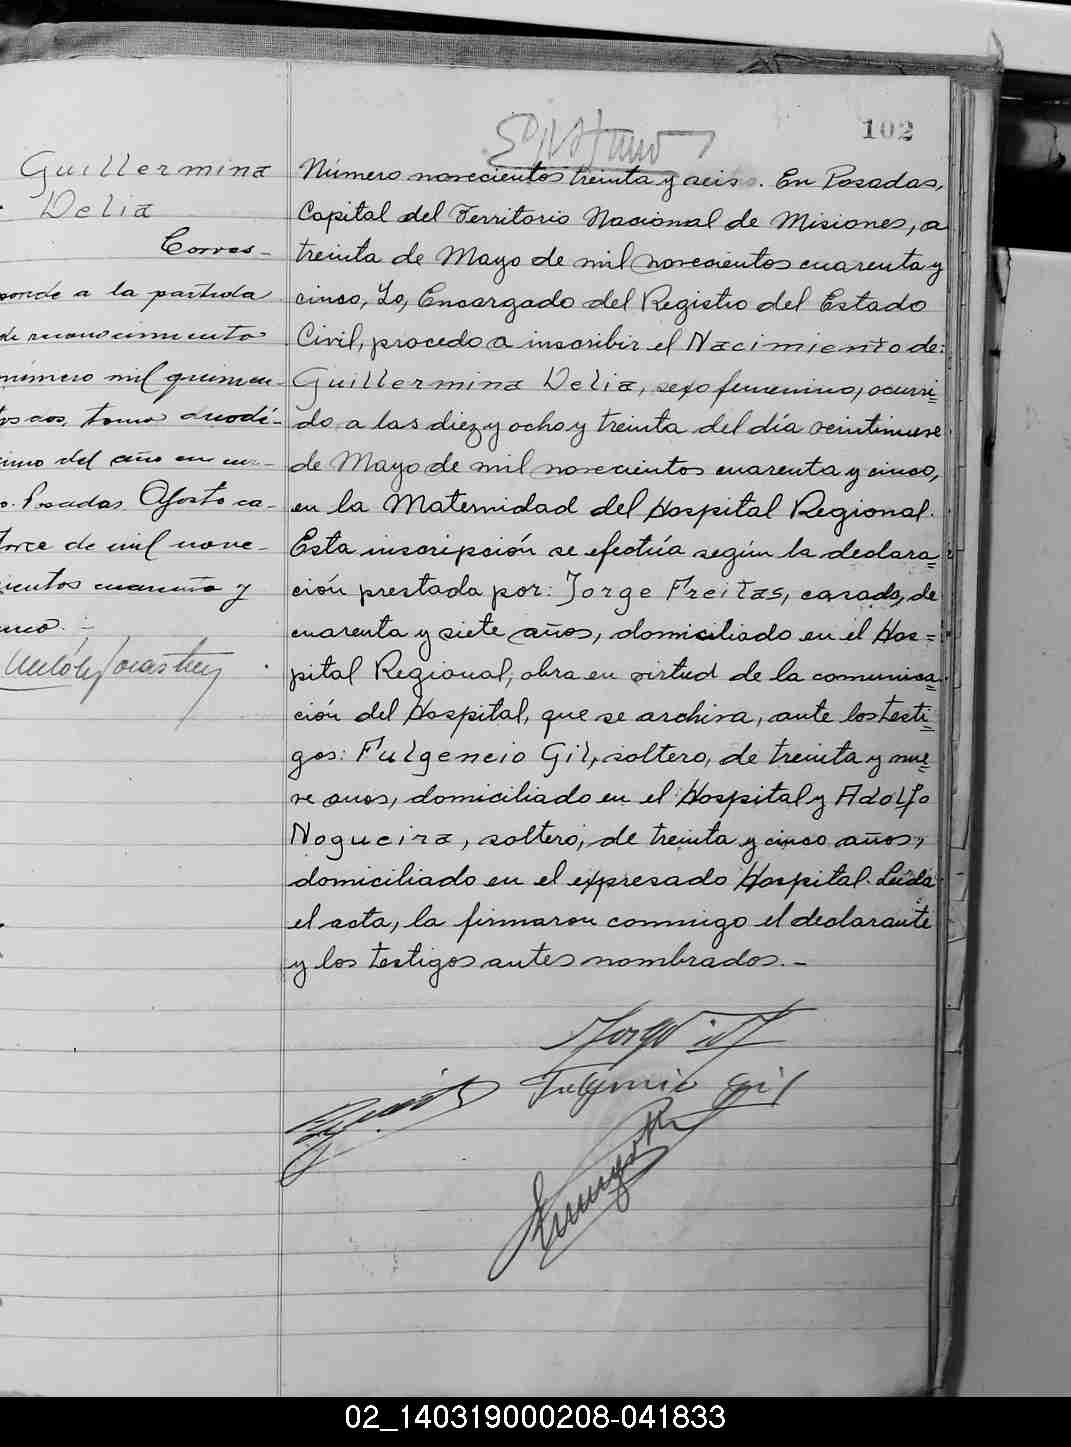 102
Guillermina
Delia
Corres-
ponde a la partida
de reconocimiento
número mil quinien-
tos dos, tomo duodé-
cimo del año en cur-
so. Posadas Agosto ca-
torce de mil nove-
cientos cuarenta y
cinco.-
Número novecientos treinta y seis. En Posadas,
Capital del Territorio Nacional de Misiones, a
treinta de Mayo de mil novecientos cuarenta y
cinco, Yo, Encargado del Registro del Estado
Civil, procedo a inscribir el Nacimiento de:
Guillermina Delia, sexo femenino, ocurri=
do a las diez y ocho y treinta del día veintinueve
de Mayo de mil novecientos cuarenta y cinco,
en la Maternidad del Hospital Regional.
Esta inscripción se efectúa según la declara=
ción prestada por: Jorge Freitas, casado, de
cuarenta y siete años, domiciliado en el Hos=
pital Regional, obra en virtud de la comunica=
ción del Hospital, que se archiva, ante los testi=
gos: Fulgencio Gil, soltero, de treinta y nue=
ve anos, domiciliado en el Hospital y Adolfo
Nogueira, soltero, de treinta y cinco años,
domiciliado en el expresado Hospital. Leída
el acta, la firmaron conmigo el declarante
y los testigos antes nombrados.-
Fulgencio Gil
02_140319000208-041833